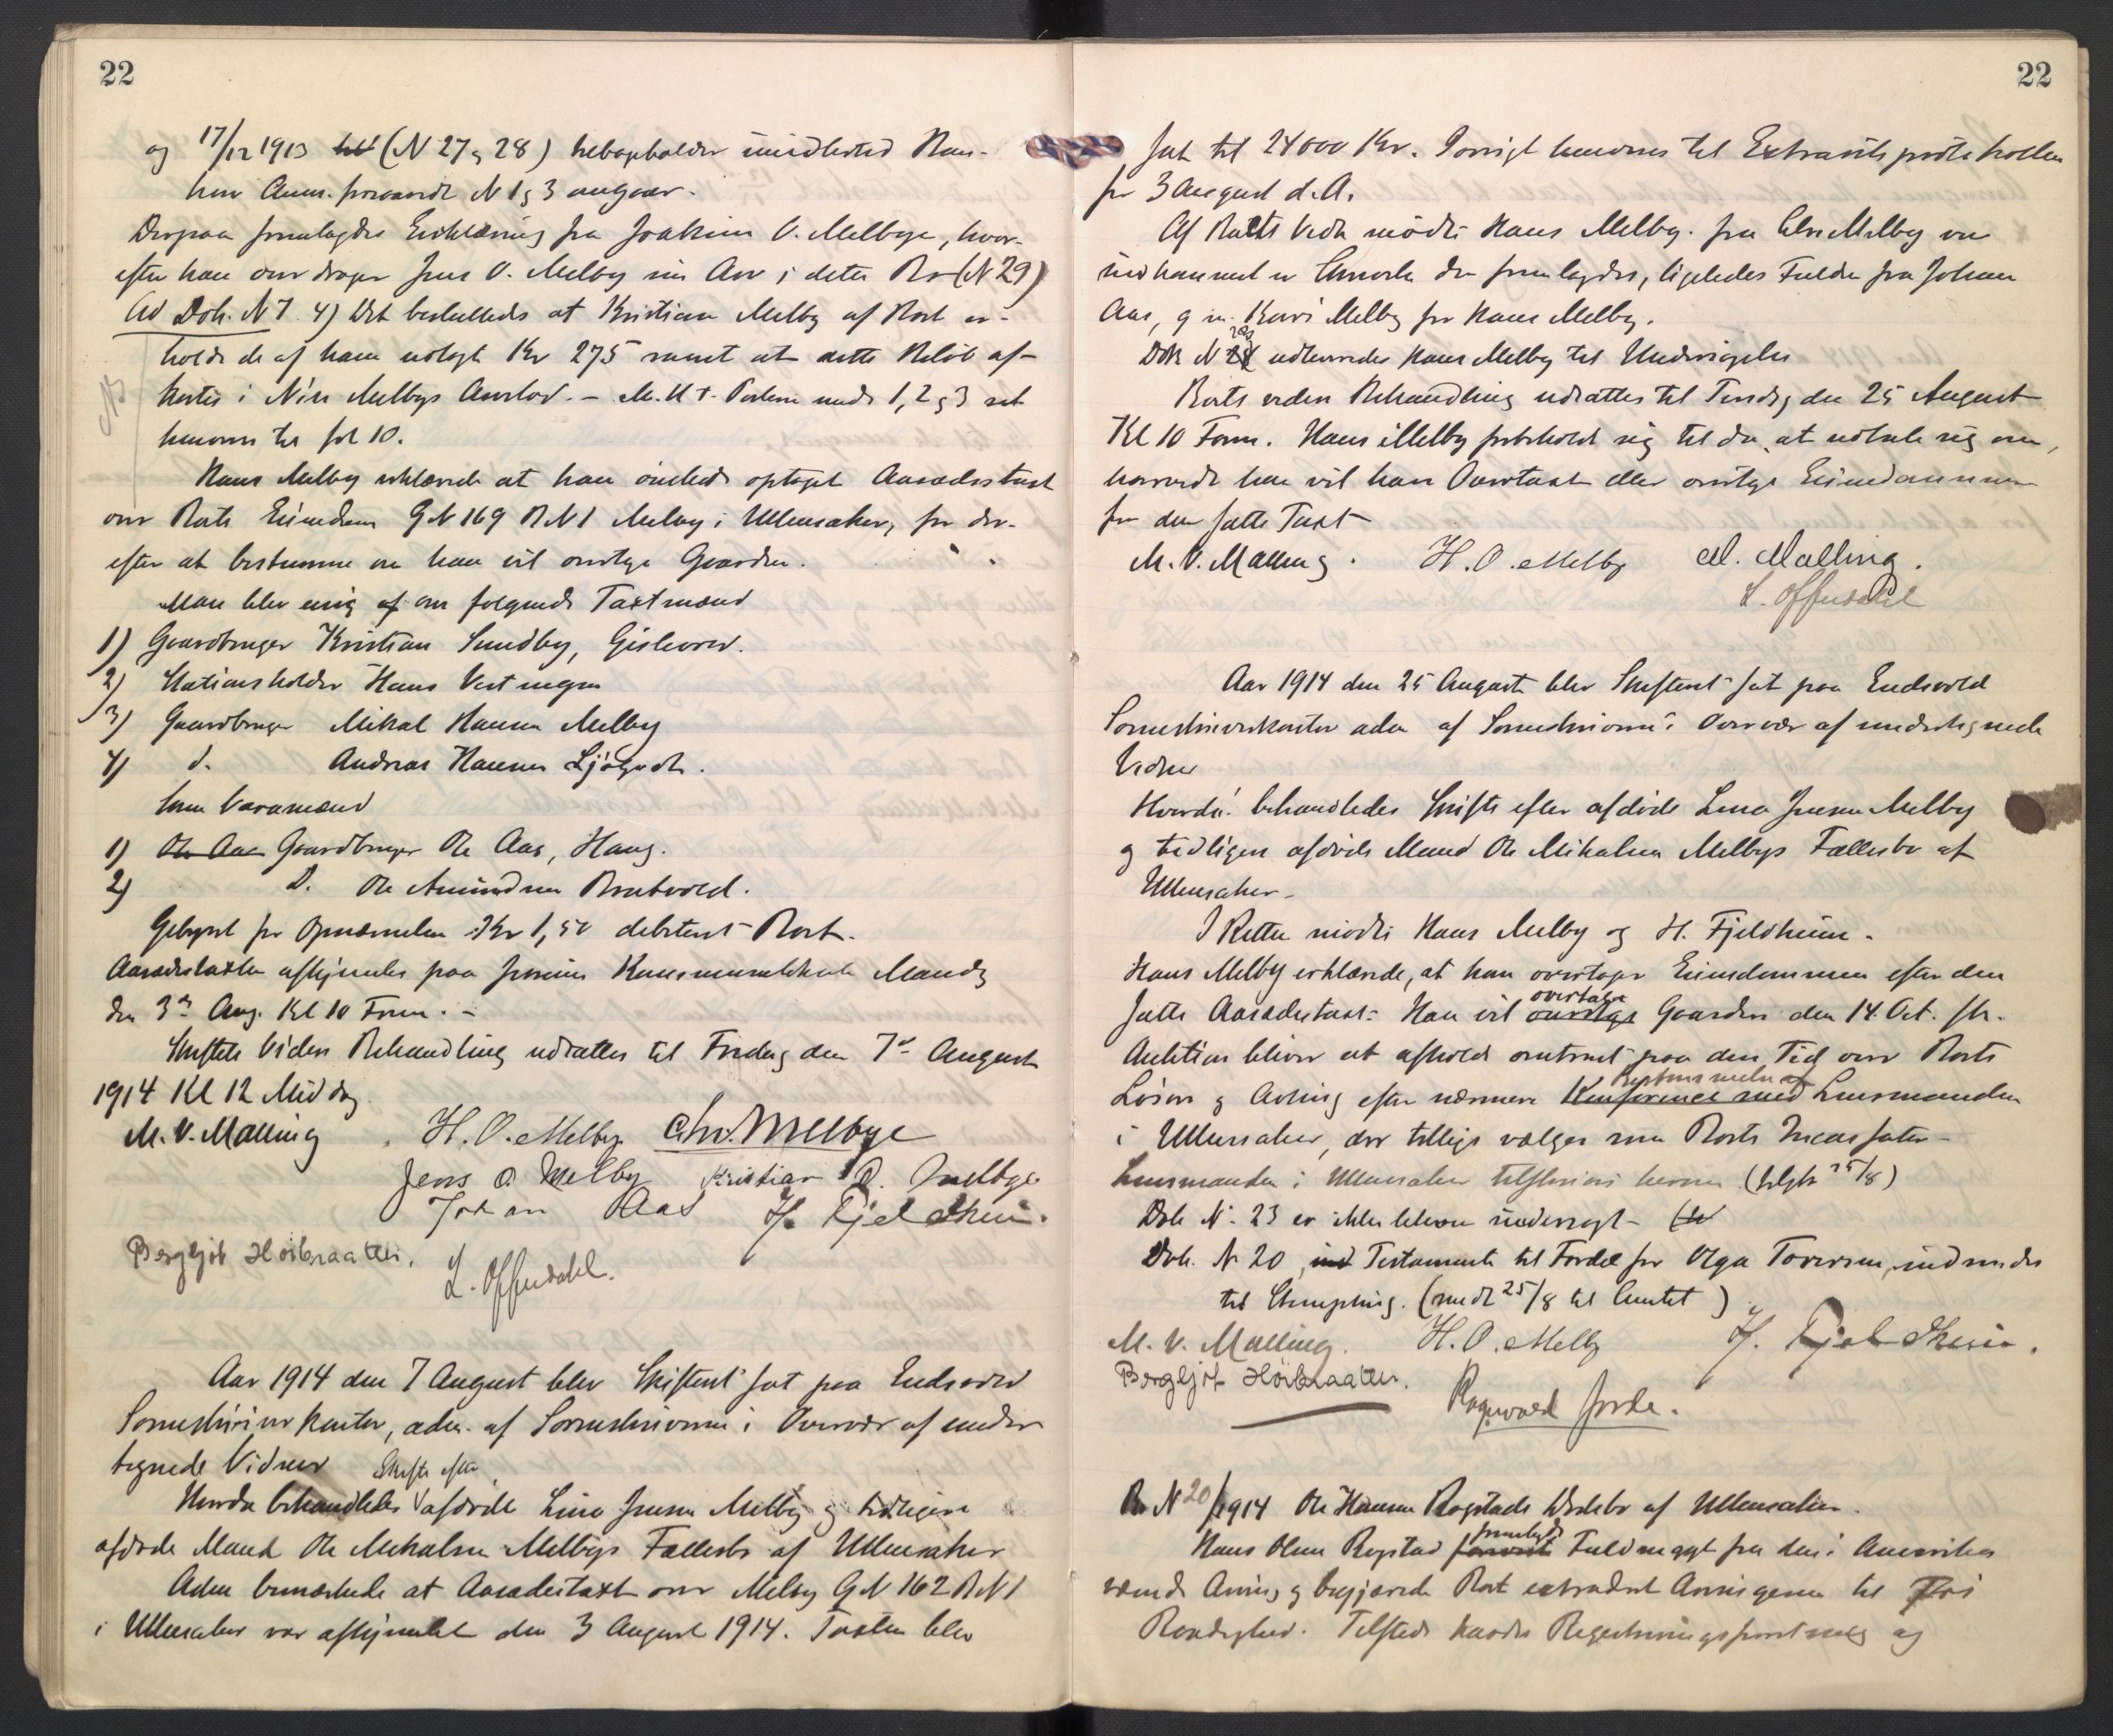 22
og 17/12 1913 (N 27 og 28) tilbageholder imidlertid Hans-
hun Anm. forsaavidt N 1 og 3 angaar.
Derpaa fremlagdes Erklæring fra Joakim O. Melbye, hvor-
efter han overdrager Jens O. Melby sin Arv i dette Bo (N 29)
Ad Dok. N 7. 4) Det besluttedes at Kristian Melby af Boet er-
holder de af ham udlagte Kr 275 samt at dette Beløb af-
kortes i Melbys Arvelod. - M. H. t. Posterne under 1, 2 og 3 
henvises til fol 10.
Hans Melby erklærede at han ønskede optaget Aasædestaxt
over Boets Eiendom G N 169 B N 1 Melby i Ullensaker, for der-
efter at bestemme om han vil overtage Gaarden.
Man blev enig om følgende Taxtmænd
1) Gaardbruger Kristian Sundby, Gislevold.
2) Stationsholder Hans Vestengen
3) Gaardbruger Mikal Hansen Melby
4) d. Andreas Hansen Ljøgodt.
Som Varamænd
1) Ole Aas Gaardbruger Ole Aas, Haug.
2) D. Ole Amundsen Bratvold.
Gebyret for Opnævnelsen Kr 1,50 debiteret Boet.
Aasædestaxten afhjemles paa Jessheim Kommunelokale Mandag
den 3die Aug. Kl 10 Form. -
Skiftets Videre Behandling udsættes til Fredag den 7de August
1914 Kl 12 Middag
M. V. Malling H. O. Melby Chr. Melbye
Jens O. Melby Kristian O. Melbye
Johan Aas H. Fjeldheim.
Bergljot Hoibraaten. L. Offerdahl.
Aar 1914 den 7 August blev Skifteret sat paa Eidsvold
Sorenskriverkontor, adm. af Sorenskriveren i Overvær af under-
tegnede Vidner
Skifte efter
Hvorda behandledes afdøde Lina Jensen Melby og tidligere
afdøde Mand Ole Mikalsen Melbys Fællesbo af Ullensaker
Adm bemærkede at Aasædestaxt over Melby G N 162 B N 1
i Ullensaker var afhjemlet den 3 August 1914. Taxten blev
22
sat til 24000 Kr. Iøvrigt henvises til Extraretsprotokollen
for 3 August d. A.
Af Boets Vedk mødte Hans Melby. fra Chr Melby var
indkommet en Skrivelse der fremlagdes, ligeledes Fuldm fra Johan
Aas, g. m. Kari Melby for Hans Melby.
Dok N udleveredes Hans Melby til Undersøgelse
Boets videre Behandling udsættes til Tirsdag den 25 August
Kl 10 Form. Hans Melby forbeholdt sig til da, at udtale sig om,
hvorvidt han vil have Overtaxt eller overtage Eiendommen
for den satte Taxt
M. V. Malling. H. O. Melby M. Malling.
L. Offerdahl
Aar 1914 den 25 August blev Skifteret sat paa Eidsvold
Sorenskriverkontor adm af Sorenskriveren i Overvær af undertegnede
Vidner
Hvorda behandledes Skifte efter afdøde Lina Jensen Melby
og tidligere afdøde Mand Ole Mikalsen Melbys Fællesbo af
Ullensaker -
I Retten mødte Hans Melby og H. Fjeldheim -
Hans Melby erklærede, at han overtager Eiendommen efter den
overtage
satte Aasædestaxt. Han vil overtage Gaarden den 14. Oct. 
Auktion bliver at afholde omtrent paa den Tid over Boets
Bestemmelse af
Løsøre og Avling efter nærmere Konference med Lensmanden
i Ullensaker, der tillige vælges som Boets Incassator -
Lensmanden i Ullensaker tilskrives herom (tilskr 25/8)
Dok N. 23 er ikke bleven undersøgt -
Dok. N 20, Testamente til Fordel for Olga Toversen, indsendes
til Stempling. (sendt 25/8 til Amtet)
M. V. Malling. H. O. Melby H. Fjeldheim.
Bergljot Hoibraaten. Ragnvald Jorde.
Bo N 20/1914 Ole Hansen Rogstads Dødsbo af Ullensaker.
fremlagde
Hans Olsen Rogstad Fuldmagt fra den i Amerika
værende Arving og begjærede Boet extraderet Arvingerne til fri
Raadighed. Tilstede havdes Registreringsforretning og